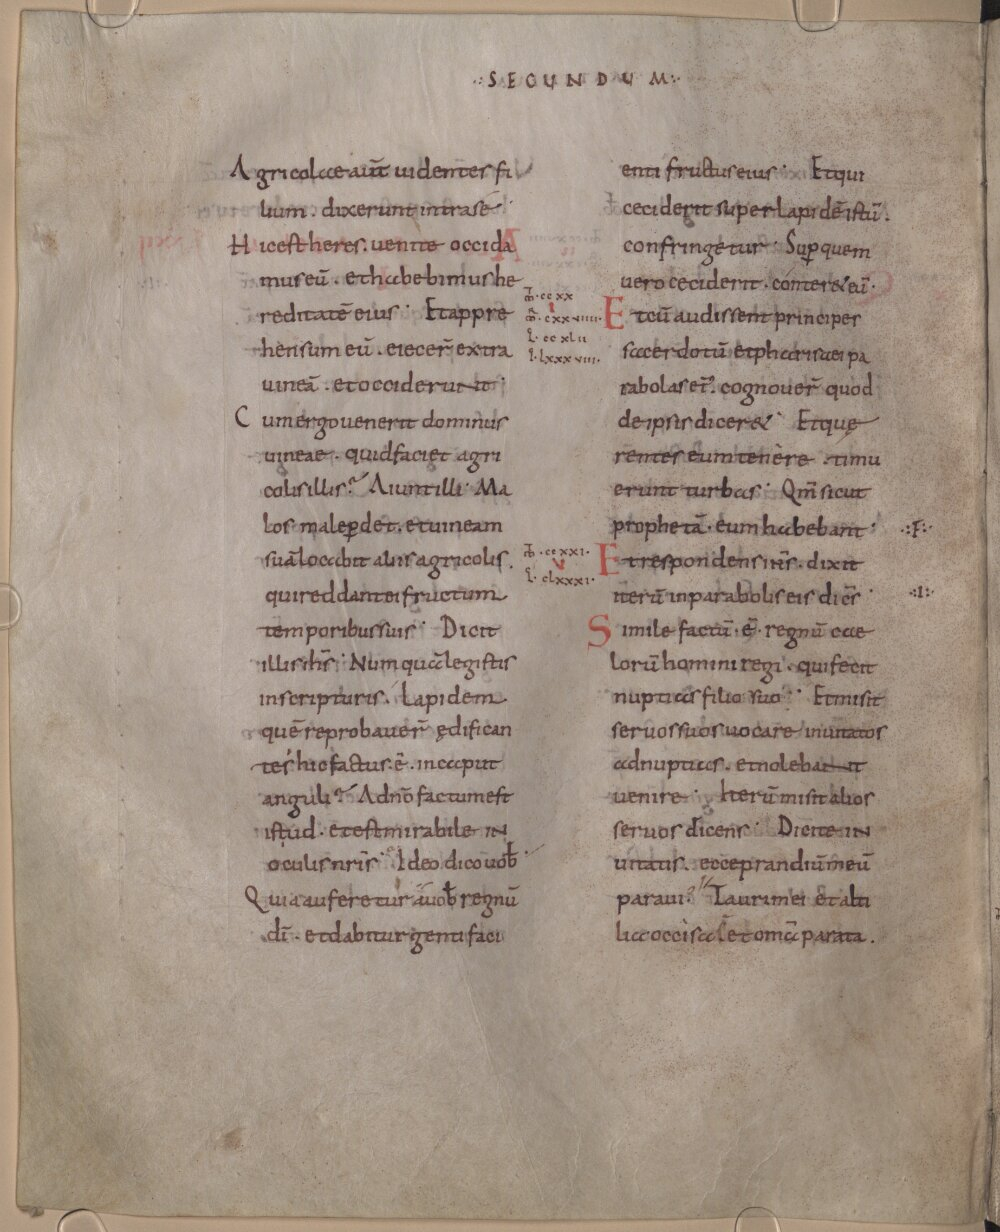 ·: SECUNDUM :·
Agricolae aut̄ uidentes fi
lium . dixerunt intra se ·
Hic est heres . uenite occida
mus eū . et habebimus he
reditatē eius · Et appre
hensum eū . eiecer̄ extra
uineā . et occiderunt ·
Cum ergo uenerit dominus
uineae . quid faciet agri
colis illis? Aiunt illi · Ma
los male p̱det . et uineam
suā locabit aliis agricolis .
qui reddant ei fructum
temporibus suis · Dicit
illis ih̄s · Numquā legistis
in scripturis . Lapidem
quē reprobauer̄ ędifican
tes hic factus . ē . in caput
anguli? A dn̄o factum est
istud . et est mirabile in
oculis nr̄is? Ideo dico uob̄
Quia auferetur a uob̄ regnū
dī . et dabitur genti faci
m̄ · ccxx
m̄ · cxxviiii ·
l · ccxlii
i · lxxxviii ·
m̄ · ccxxi ·
l · clxxxi ·
enti fructus eius · Et qui
ceciderit super lapidē istū .
confringetur · Sup̱ quem
uero ceciderit . conter& eū ·
Et cū audissent principes
sacerdotū et pharisaei pa
rabolas ei᷒ . cognouer̄ quod
de ipsis dicer& · Et quę
rentes eum tenere . timu
erunt turbas · Qm̄ sicut
prophetā . eum habebant ·
·:F:·
Et respondens ih̄s . dixit
iterū in parabolis eis dicēs ·
·:I:·
Simile factū . ē . regnū cae
lorū homini regi . qui fecit
nuptias filio suo · Et misit
seruos suos uocare inuitatos
ad nuptias . et nolebant
uenire · Iterū misit alios
seruos dicens · Dicite in
uitatis . ecce prandiū meū
paraui? Tauri mei et alti
lia occisa s̄ et omā parata .